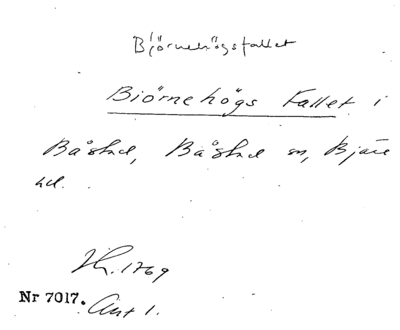 Björnehögsfallet
Biörnehögs Fallet i
Båstad, Båstad sn, Bjäre
hd.
Hr. 1769
Nr 7017. Akt 1.